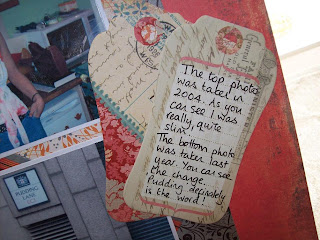 The top photo
was taken in
2004. As you
can see I was
really, quite
slim.
The bottom photo
was taken last
year. You can see
the change.
Pudding definately
is the word!
PUDDING
LANE